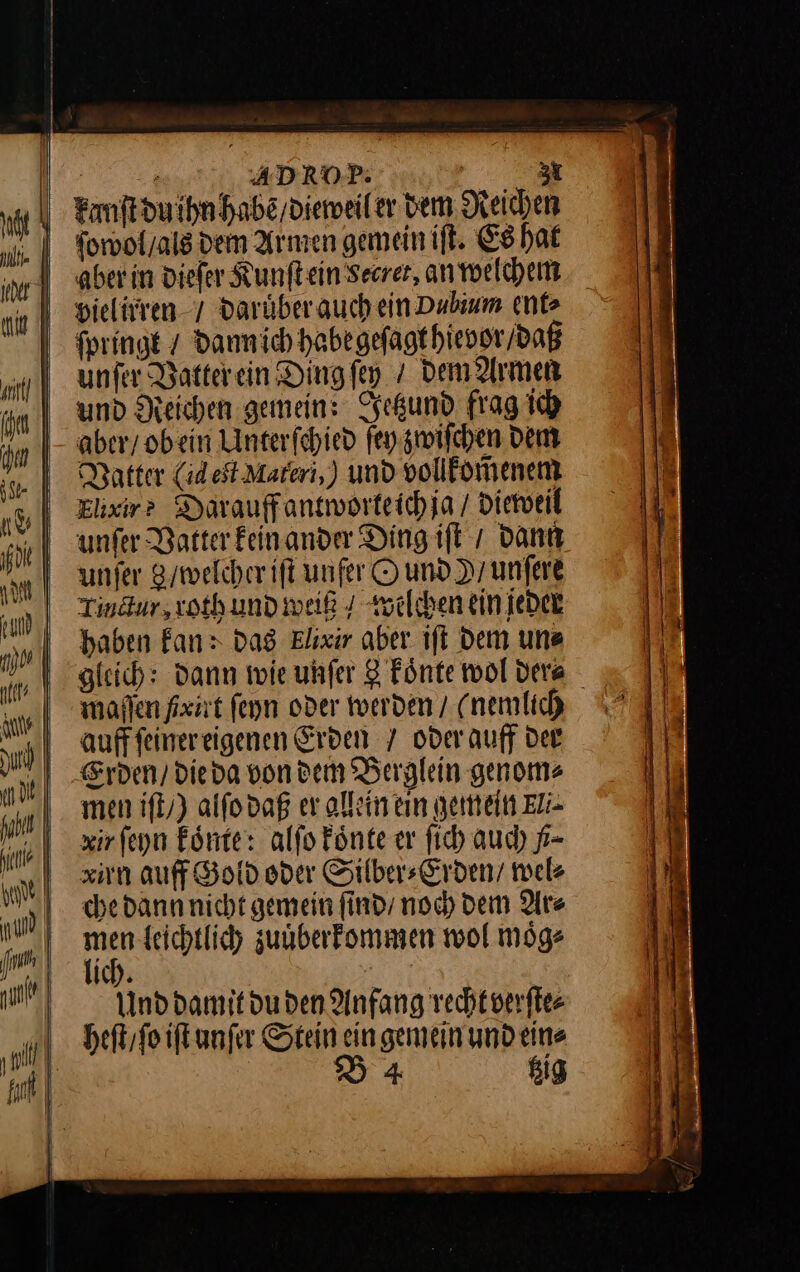 ADROP. 31
kanſt du ihn habē/dieweil er dem Reichen
ſowol/als dem Armen gemein iſt. Es hat
aber in dieſer Kunſt ein Secret, an welchem
viel irren / daruͤber auch ein Dubium ent⸗
ſpringt / dann ich habe geſagt hievor/daß
unſer Vatter ein Ding ſey / dem Armen
und Reichen gemein: Jetzund frag ich
aber/ ob ein Unterſchied ſey zwiſchen dem
Vatter (id est Materi,) und vollkom̃enem
Elixir? Darauff antworte ich ja / dieweil
unſer Vatter kein ander Ding iſt / dann
unſer ☿/welcher iſt unſer ☉ und ☽/unſere
Tinctur, roth und weiß / welchen ein jeder
haben kan: das Elixir aber iſt dem un⸗
gleich: dann wie unſer ☿ koͤnte wol der⸗
maſſen fixirt ſeyn oder werden / (nemlich
auff ſeiner eigenen Erden / oder auff der
Erden/ die da von dem Berglein genom⸗
men iſt/) alſo daß er allein ein gemein Eli-
xir ſeyn koͤnte: alſo koͤnte er ſich auch fi-
xirn auff Gold oder Silber⸗Erden/ wel⸗
che dann nicht gemein ſind/ noch dem Ar⸗
men leichtlich zuuͤberkommen wol moͤg⸗
lich.
Und damit du den Anfang recht verſte⸗
heſt/ſo iſt unſer Stein ein gemein und ein⸗
B 4 tzig